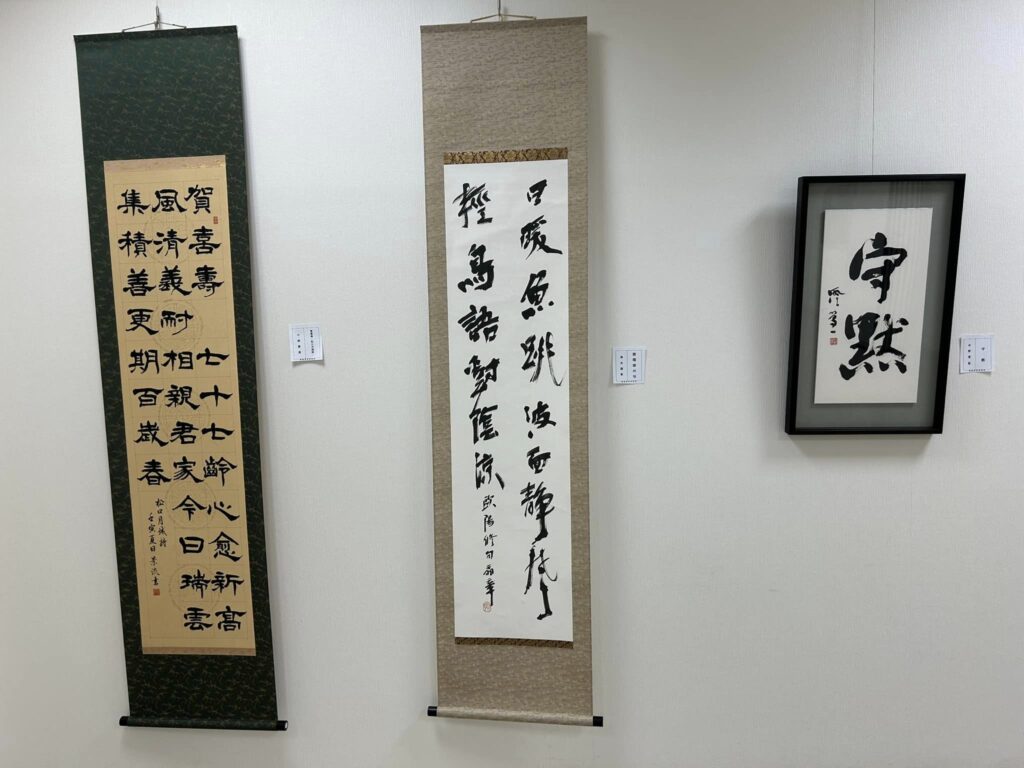 賀喜壽 七十七齡心愈新高
風清義耐相親君家今日瑞雲
集積善更期百歳春
松口月城詩
壬寅夏日
日暖魚跳波面靜風
輕鳥語樹陰涼 歐陽修句
守默